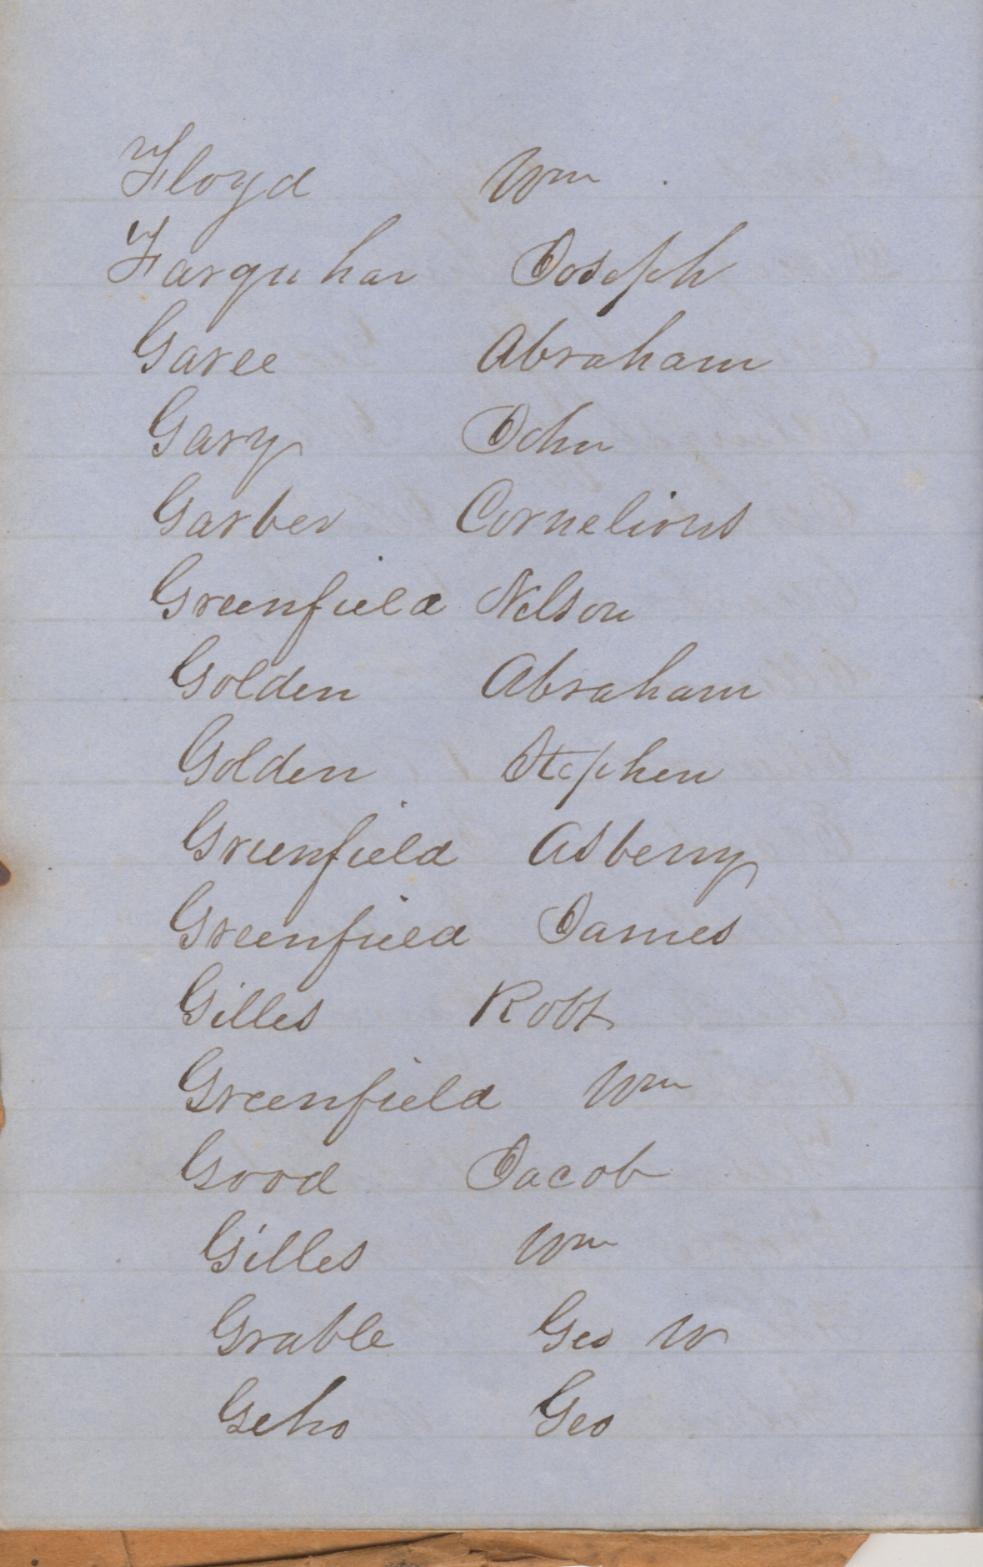 Floyd Wm
Farquhar Joseph
Garee Abraham
Gary John
Garber Cornelious
Greenfield Nelson
Golden Abraham
Golden Stephen
Greenfield Asberry
Greenfield James
Gilles Robt
Greenfield Wm
Good Jacob
Gilles Wm
Grable Geo W
Geho Geo